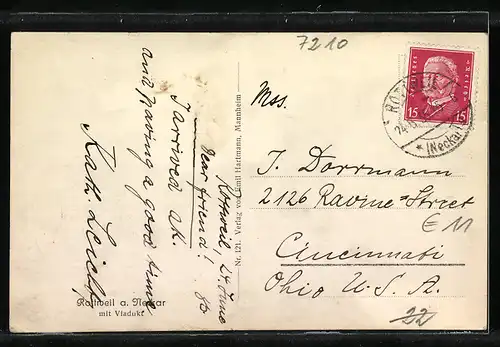 7210
Rottweil, 24 June
Dear friend!
I arrived o.k.
and having a good time
Kath. Leicht
Rottweil a. Neckar
mit Viadukt
Nr. 121. Verlag von Emil Hartmann, Mannheim
Mss.
J. Dorrmann
2126 Ravine Street
Cincinnati
Ohio U.S.A.
€ 11
22
15 15
(Neckar)